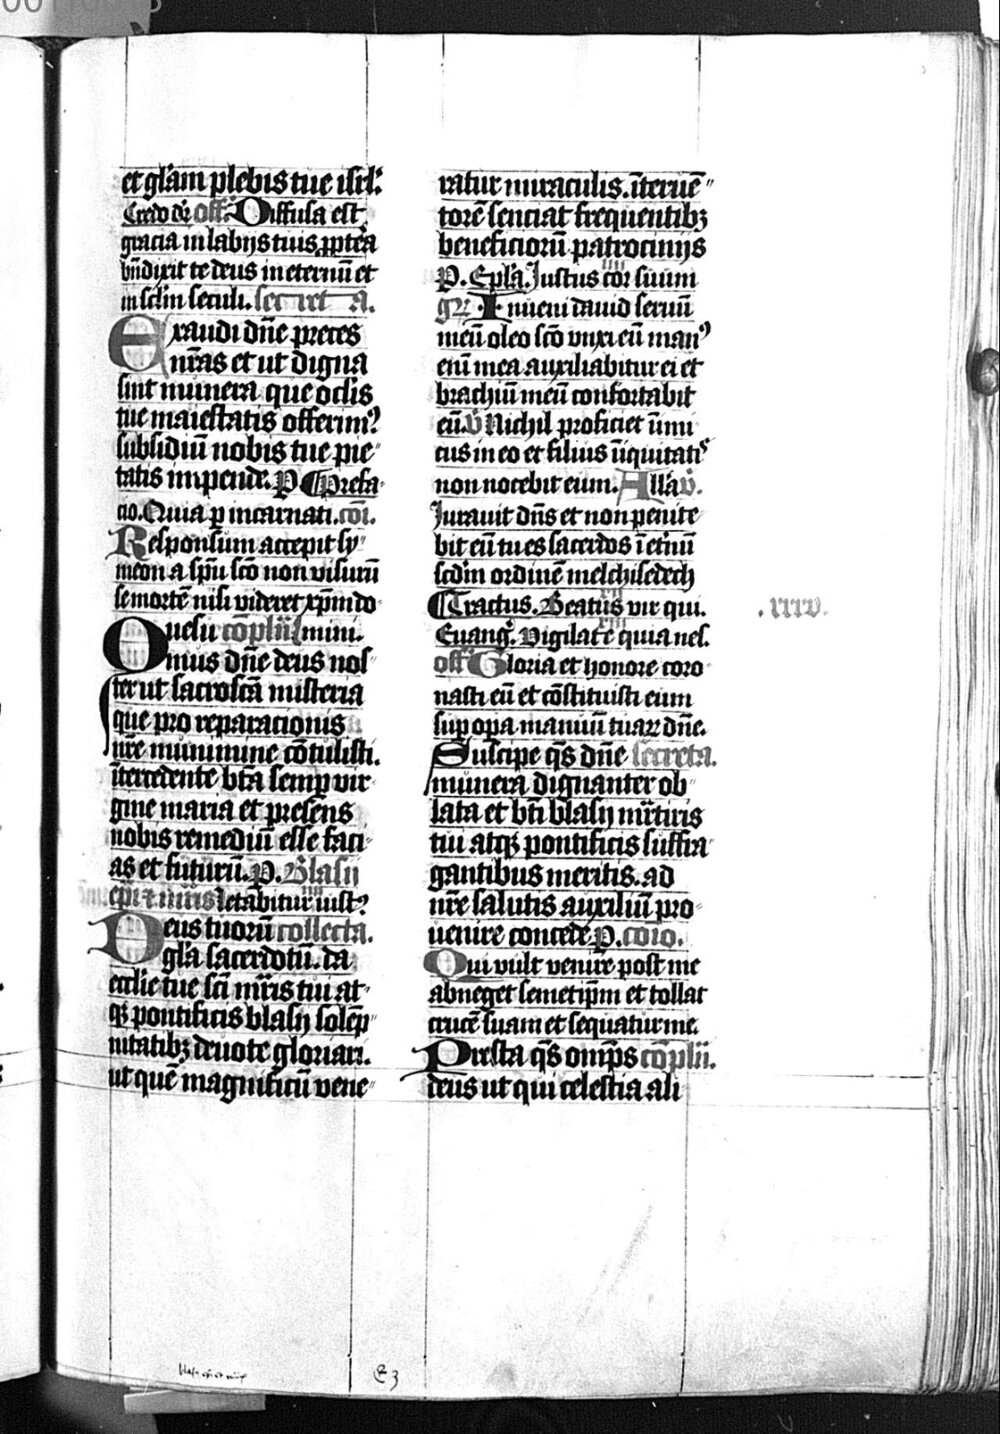 et glam plebis tue isrl.
Credo dr off. Diffusa est
gracia in labijs tuis ppterea
bndixit te deus in eternu et
in sclm seculi. secreta.
Exaudi dne preces
nras et ut digna
sint munera que oclis
tue maiestatis offerim9
subsidiu nobis tue pie
tatis impende. P. Prefa
cio. Quia p incarnati. coi.
Responsum accepit sy
meon a spu sco non visuru
se mortē nisi videret xpm do
Quesu coplii mini.
mus dne deus nos
ter ut sacrosca misteria
que pro reparacionis
nre munimine cotulisti.
itercedente bta semp vir
gine maria et presens
nobis remediu esse faci
as et futuru. P. Blasii
epi t mris letabitur iust9
Deus tuoru collecta.
gla sacerdotu. da
ecclie tue sci mris tui at
q3 pontificis blasij solep
nitatib3 devote gloriari.
ut quē magnificu vene
ratur miraculis. iteruē
torē senciat frequentib3
beneficioru patrocinijs
P. Epla. Justus cor suum
gr. Inveni david servu
meu oleo sco unxi eu man9
eni mea auxiliabitur ei et
brachiu meu confortabit
eu. v Nichil proficiet inimi
cus in eo et filius iniquitatis
non nocebit eum. Alla v.
Juravit dns et non penite
bit eu tu es sacerdos i eternu
scdm ordinē melchisedech
Tractus. Beatus vir qui.
Euang. Vigilate quia nes.
off Gloria et honore coro
nasti eu et costituisti eum
sup opa manuu tuar dne.
Suscipe qs dne secreta.
munera dignanter ob
lata et bti blasij mrtiris
tui atq3 pontificis suffra
gantibus meritis. ad
nre salutis auxiliu pro
venire concede. P. coio.
Qui vult venire post me
abneget semetipm et tollat
crucē suam et sequatur me.
Presta qs omps coplii.
deus ut qui celestia ali
.xxxv.